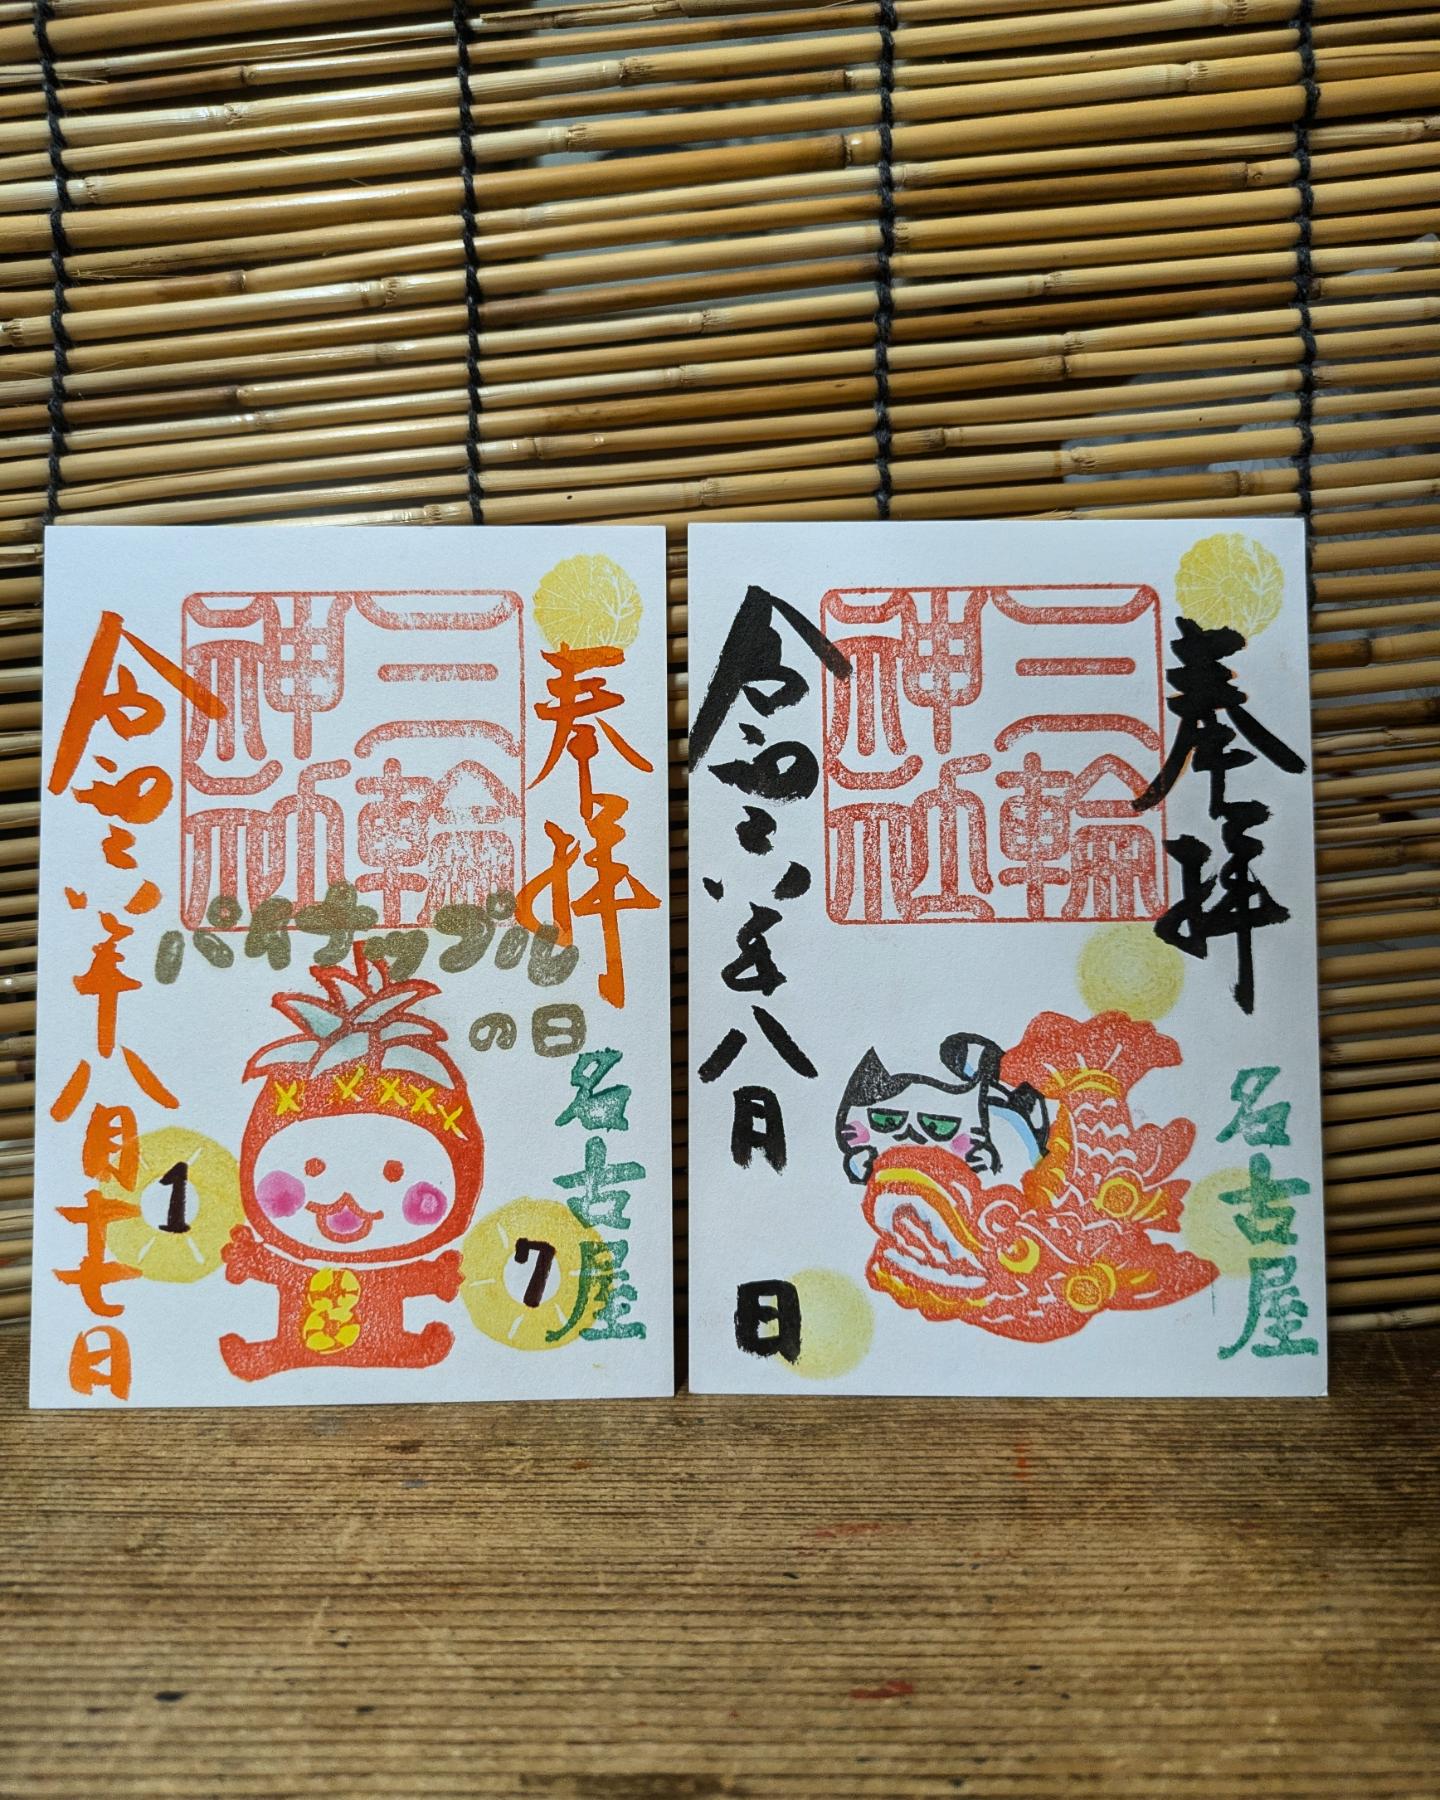 奉拝
三輪
神社
パイナップル
の日
名古屋
1 7
令和六年八月十七日
奉拝
三輪
神社
名古屋
令和六年八月 日